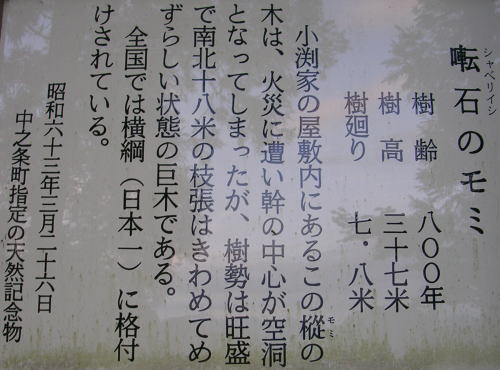 囀石のモミ
シャベリイシ
樹齢 八〇〇年
樹高 三十七米
樹廻り 七・八米
小渕家の屋敷内にあるこの樅の
モミ
木は、火災に遭い幹の中心が空洞
となってしまったが、樹勢は旺盛
で南北十八米の枝張はきわめてめ
ずらしい状態の巨木である。
全国では横綱（日本一）に格付
けされている。
昭和六十三年三月二十六日
中之条町指定の天然記念物